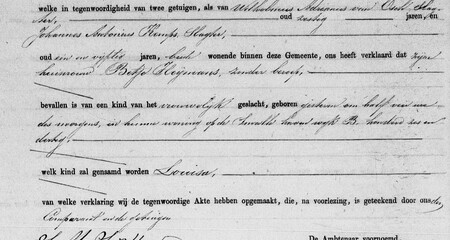 welke in tegenwoordigheid van twee getuigen, als van Wilhelmus Adrianus van
oud zestig jaren, en
Johannes Antonius Kemps, Slagter,
oud een en vijftig jaren, beide wonende binnen deze Gemeente, ons heeft verklaard dat zijne
huisvrouw Betje Heymans, zonder beroep,
bevallen is van een kind van het vrouwelijk geslacht, geboren gisteren om half vier ure
des morgens, in hunne woning op de haven wijk B. honderd zes en
dertig,
welk kind zal genaamd worden Louisa,
van welke verklaring wij de tegenwoordige Akte hebben opgemaakt, die, na voorlezing, is geteekend door ons, den
Comparant en de getuigen
De Ambtenaar voornoemd